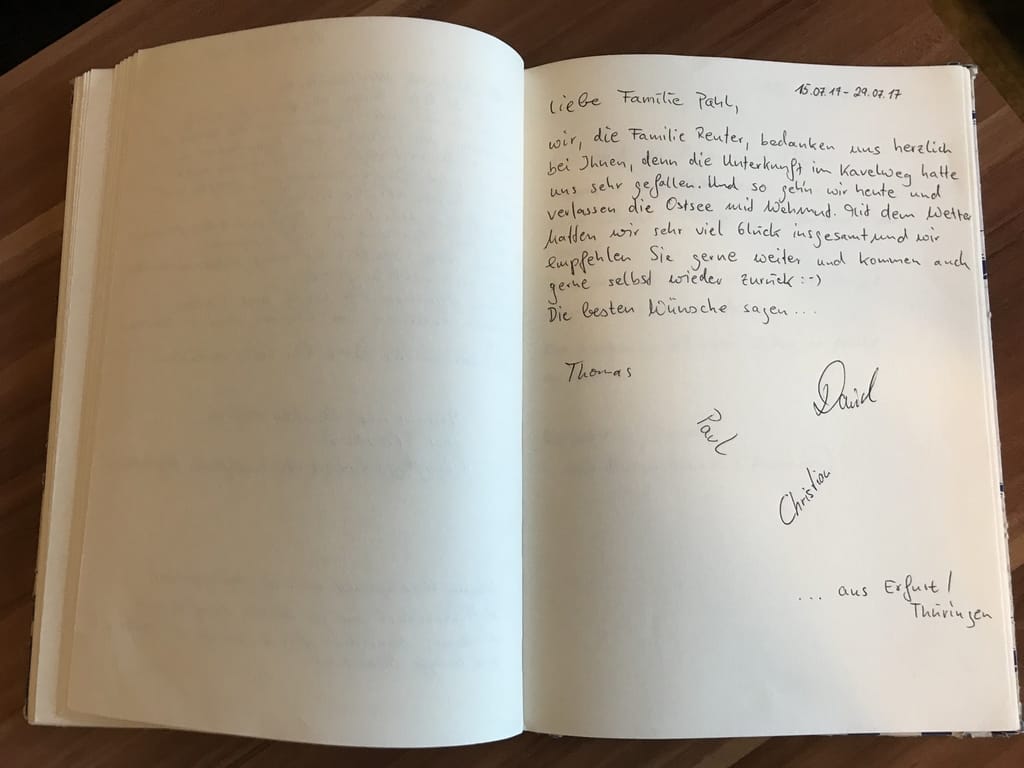 15.07.17 - 29.07.17
Liebe Familie Pahl,
wir, die Familie Reuter, bedanken uns herzlich
bei Ihnen, denn die Unterkunft im Kavelweg hatte
uns sehr gefallen. Und so geh'n wir heute und
verlassen die Ostsee mit Wehmut. Mit dem Wetter
hatten wir sehr viel Glück insgesamt und wir
empfehlen Sie gerne weiter und kommen auch
gerne selbst wieder zurück :-)
Die besten Wünsche sagen ...
Thomas
David
Paul
Christian
... aus Erfurt /
Thüringen